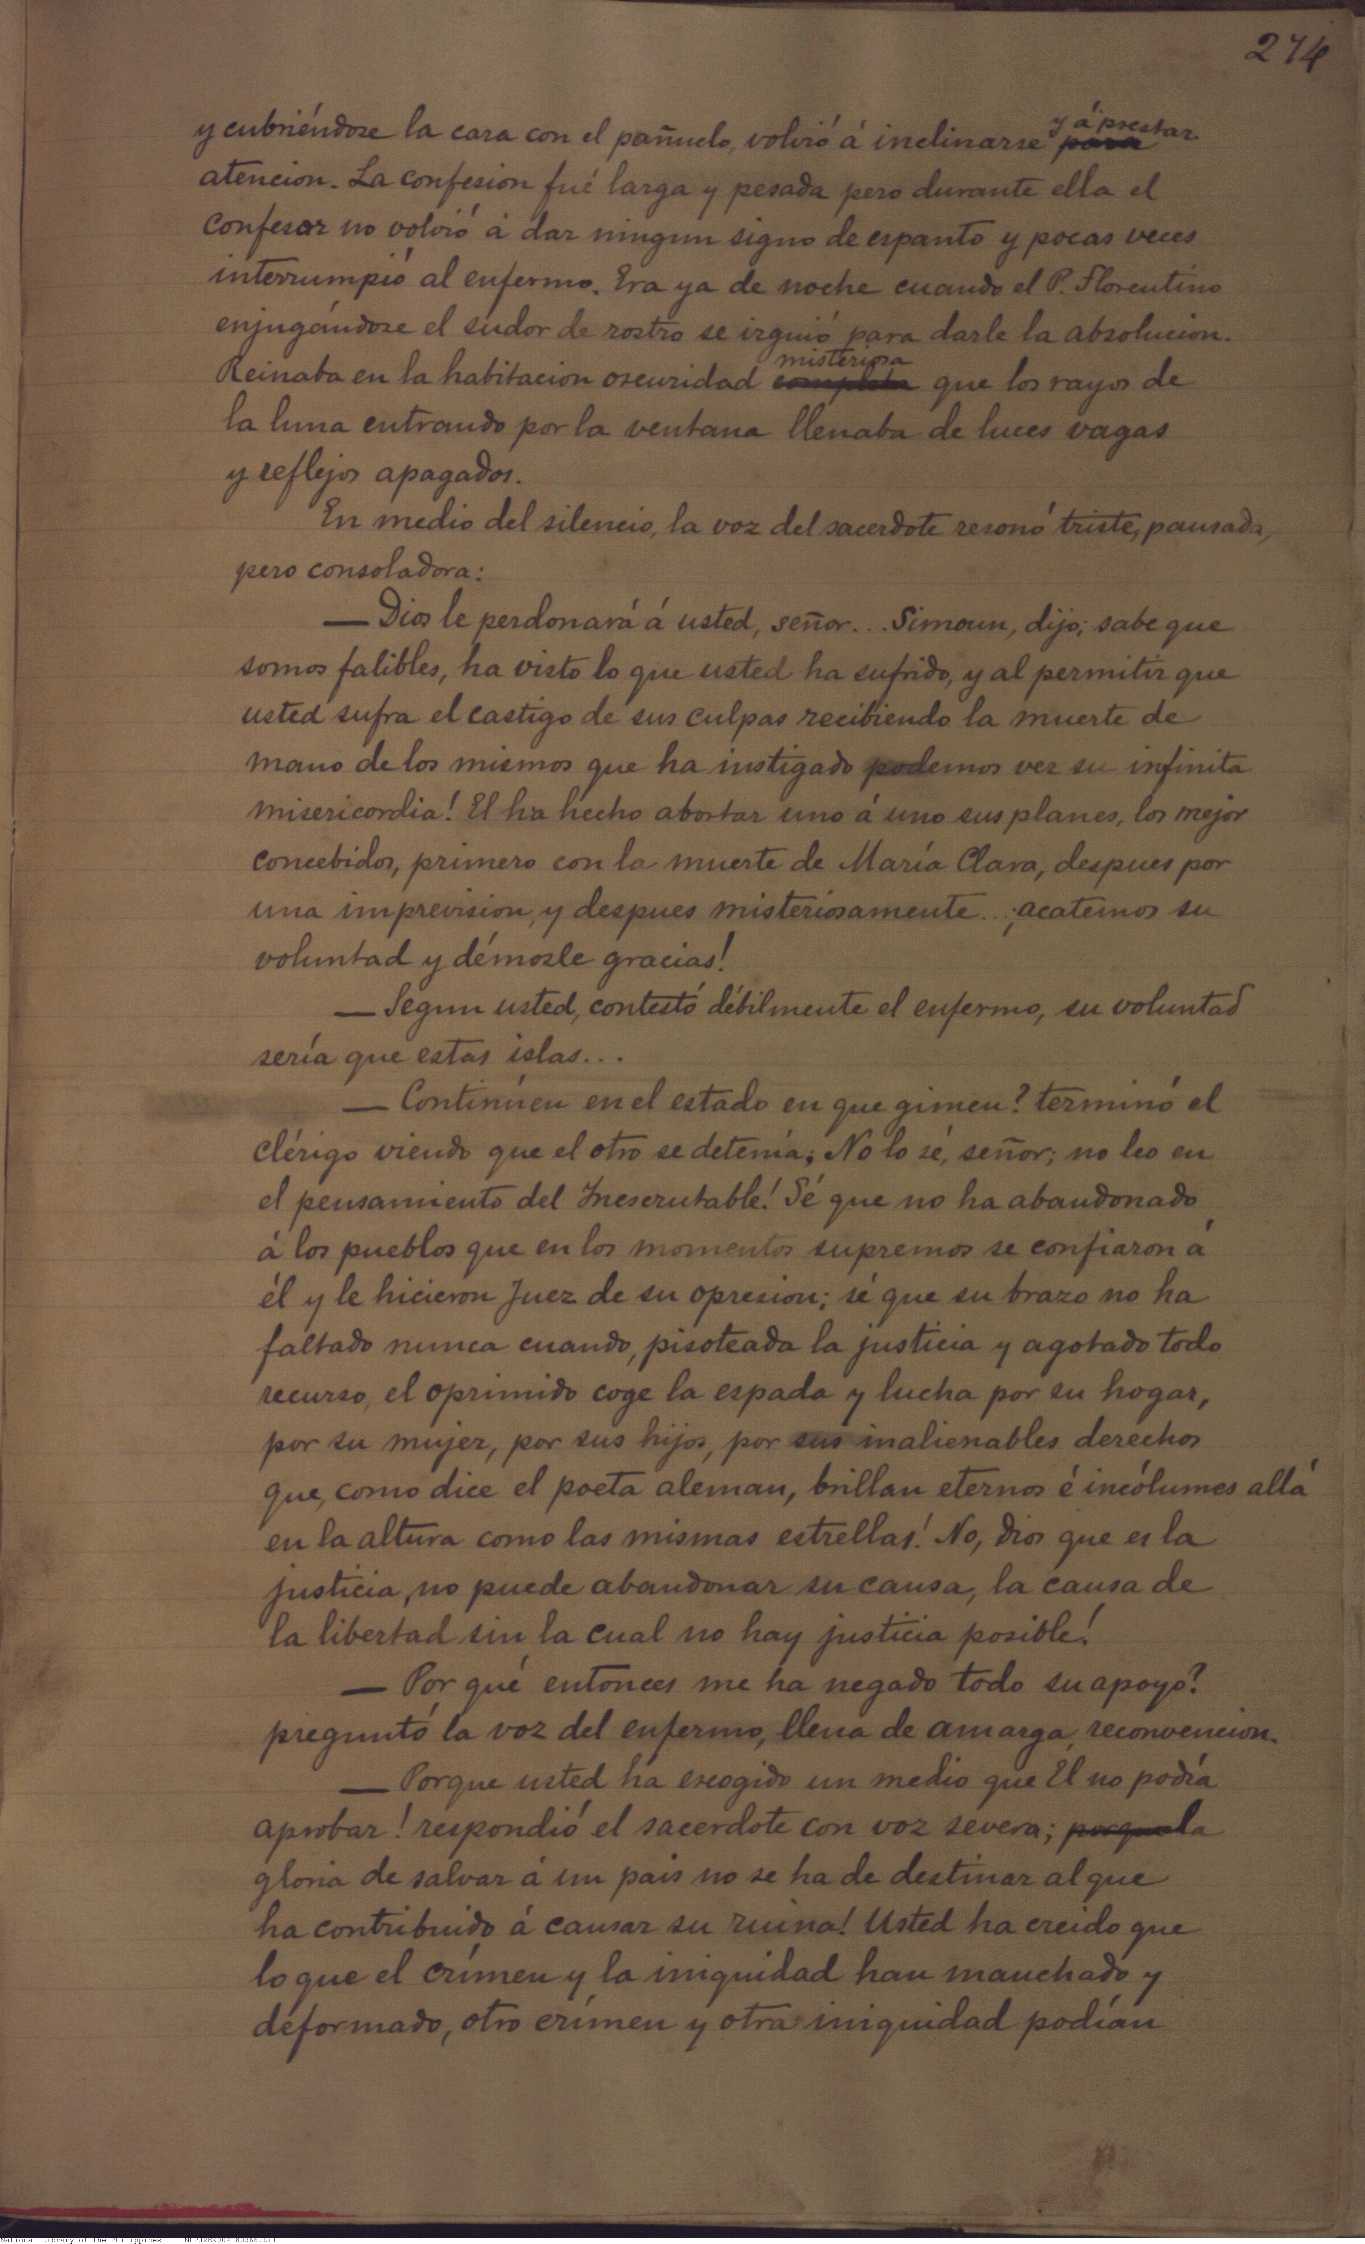 274
y cubriéndose la cara con el pañuelo, volvió á inclinarse y á prestar
atencion. La confesion fué larga y pesada pero durante ella el
confesor no volvió á dar ningun signo de espanto y pocas veces
interrumpió al enfermo. Era ya de noche cuando el P. Florentino
enjugándose el sudor de rostro se irguió para darle la absolucion.
Reinaba en la habitacion oscuridad misteriosa que los rayos de
la luna entrando por la ventana llenaba de luces vagas
y reflejos apagados.
En medio del silencio, la voz del sacerdote resonó triste, pausada,
pero consoladora:
— Dios le perdonará á usted, señor... Simoun, dijo; sabe que
somos falibles, ha visto lo que usted ha sufrido, y al permitir que
usted sufra el castigo de sus culpas recibiendo la muerte de
mano de los mismos que ha instigado podemos ver su infinita
misericordia! El ha hecho abortar uno á uno sus planes, los mejor
concebidos, primero con la muerte de María Clara, despues por
una imprevision, y despues misteriosamente... ¡acatemos su
voluntad y démosle gracias!
— Segun usted, contestó débilmente el enfermo, su voluntad
sería que estas islas...
— Continúen en el estado en que gimen? terminó el
clérigo viendo que el otro se detenía; No lo sé, señor; no leo en
el pensamiento del Inescrutable! Sé que no ha abandonado
á los pueblos que en los momentos supremos se confiaron á
él y le hicieron Juez de su opresion; sé que su brazo no ha
faltado nunca cuando, pisoteada la justicia y agotado todo
recurso, el oprimido coge la espada y lucha por su hogar,
por su mujer, por sus hijos, por sus inalienables derechos
que, como dice el poeta aleman, brillan eternos é incólumes allá
en la altura como las mismas estrellas! No, dios que es la
justicia, no puede abandonar su causa, la causa de
la libertad sin la cual no hay justicia posible!
— Por qué entonces me ha negado todo su apoyo?
preguntó la voz del enfermo, llena de amarga reconvencion.
— Porque usted ha escogido un medio que El no podía
aprobar! respondió el sacerdote con voz severa; porque la
gloria de salvar á un pais no se ha de destinar al que
ha contribuido á causar su ruina! Usted ha creido que
lo que el crímen y la iniquidad han manchado y
deformado, otro crímen y otra iniquidad podían